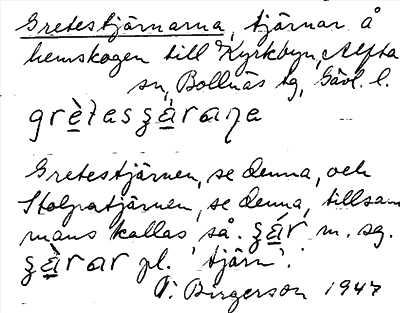 Gretestjärnarna, tjärnar å
hemskogen till Kyrkbyn, Alfta
sn, Bollnäs tg, Gävl. l.
grè̱tasʒà̱raṇa
Gretestjärnen, se denna, och
Stolpatjärnen, se denna, tillsam
mans kallas så. ʒá̱r m. sg.
ʒà̱rar pl. 'tjärn'.
P. Birgerson 1947